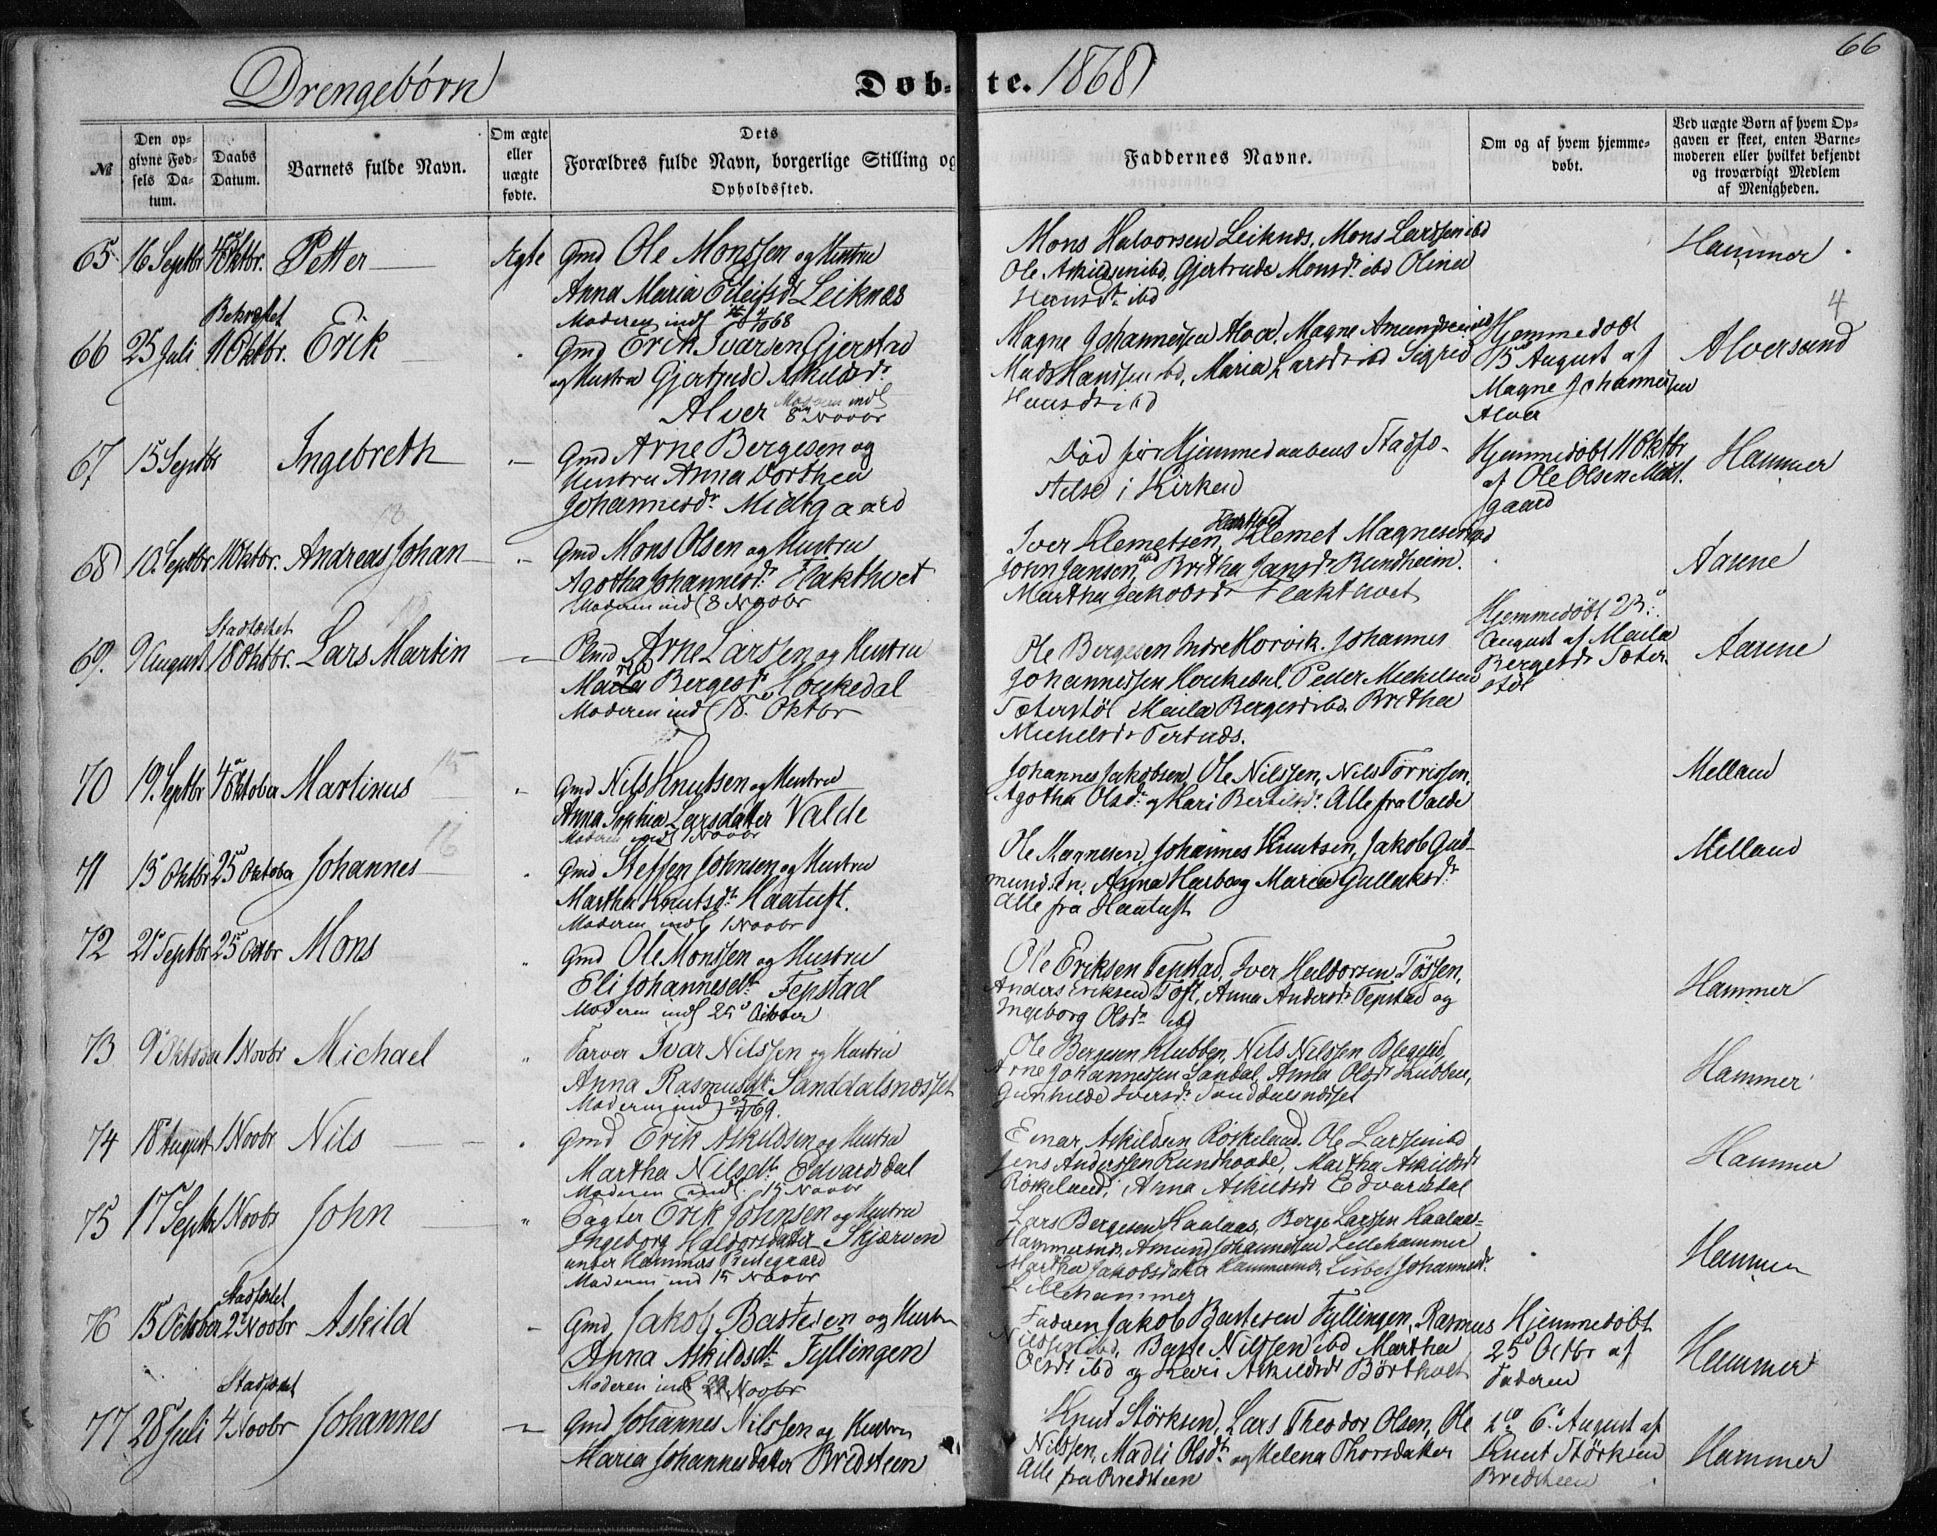 66
Drengebørn
Døbte. 1868
№
Den op-
givne Fød-
sels Da-
tum.
Daabs
Datum.
Barnets fulde Navn.
Om ægte
eller
uægte
fødte.
Dets
Forældres fulde Navn, borgerlige Stilling og
Opholdssted.
Faddernes Navne.
Om og af hvem hjemme-
døbt.
Ved uægte Børn af hvem Op-
gaven er skeet, enten Barne-
moderen eller hvilket bekjendt
og troværdigt Medlem
af Menigheden.
65 16 Septbr 4 Oktbr. Petter Ægte Gmd Ole Monssen og Hustru
Anna Maria Eileifsdr Leiknes
Moderen indl 4/10 68
Mons Halvorsen Leiknes, Mons Larssen ibd
Ole Askildsen ibd, Gjertrude Monsdr ibd Olina
Hansdr ibd
Hammer
66 25 Juli Bekræftet 11 Oktbr. Erik Gmd Erik Ivarsen Gjerstad
og Hustru Gjertrude Askildsdr
Alver Moderen indl
8 Novbr
Magne Johannessen Alver, Magne Amundsen ibd
Mads Hanssen ibd, Maria Larsdr ibd Sigrid
Hansdr ibd
Hjemmedøbt
15 August af
Magne Johannessen
Alver
4
Alversund
67 15 Septbr Ingebreth Gmd Arne Bergesen og
Hustru Anna Dorthea
Johannesdr Midtgaard
Død før Hjemmedaabens Stadfæ-
stelse i Kirken
Hjemmedøbt 11 Oktbr
af Ole Olsen Midt-
gaard
Hammer
68 10. Septbr 11 Oktbr. Andreas Johan Gmd Mons Olsen og Hustru
Agotha Johannesdr Flakthvet
Moderen indl 8 Novbr
Iver Klemetsen, Flakthvet Klemet Magnesen ibd
John Jansen, ibd Britha Jansdr Rundheim.
Martha Jakobsdr Flakthvet
Aasene
69. 9 August Stadfæstet 18 Oktbr. Lars Martin Plmd Arne Larssen og Hustru
Bergesdr Houkedal
Moderen indl 18. Oktbr
Ole Bergesen Indre Horvik. Johannes
Johannessen Houkedal. Peder Michelsen
Sæterstøl Maila Bergesdr ibd. Britha
Michelsdr Tertnæs.
Hjemmedøbt 23
August af Maila
Bergesdr Sæter-
støl
Aasene
70 19. Septbr 4 Oktober Martinus 15 Gmd Nils Knutsen og Hustru
Anna Sophia Larsdatter Valde
Moderen indl 1 Novbr
Johannes Jakobsen, Ole Nilssen, Nils Tørrissen,
Agotha Olsdr og Kari Bertilsdr Alle fra Valde
Melland
71 15 Oktbr 25 Oktober Johannes 16 Gmd Steffen Johnsen og Hustru
Martha Knutsdr Haatuft.
Moderen indl 1 Novbr
Ole Magnesen, Johannes Knutsen, Jakob Gud-
mundsen, Anna Harbog Maria Gullaksdr
Alle fra Haatuft
Melland
72 21 Septbr 25 Octbr Mons Gmd Ole Monssen og Hustru
Eli Johannesdr Fepstad
Moderen indl 25 October
Ole Eriksen Fepstad, Iver Haldorsen Tossen,
Anders Eriksen Toft, Anna Andersdr Fepstad og
Ingeborg Olsdr ibd
Hammer
73 9 Oktober 1 Novbr Michael Farver Ivar Nilssen og Hustru
Anna Rasmusdr Sanddalsnæsset
Moderen indl 69.
Ole Bergesen Klubben, Nils Nilssen
Arne Johannessen Sandal, Anna Olsdr Klubben,
Gunhilde Iversdr Sanddalsnæsset
Hammer
74 18 August 1 Novbr Nils Gmd Erik Askildsen og Hustru
Martha Nilsdr Edvardsdal
Moderen indl. 15 Novbr
Einar Askildsen Røskeland. Ole Larssen ibd
Jens Anderssen Rundhovde, Martha Askildsdr
Røskeland, Anna Askildsdr Edvardsdal
Hammer
75 17 Septbr 1 Novbr John Erik Johnsen og Hustru
Ingeborg Haldorsdatter Skjærven
under Hammers Prestegaard
Moderen indl 15 Novbr
Lars Bergesen Haalaas, Berge Larssen Haalaas-
Hammersund, Amund Johannessen Lillehammer
Martha Jakobsdatter Hammersund, Lisbet Johannesdr
Lillehammer
Hammer
76 15 October Stadfæstet 2 Novbr Askild Gmd Jakob Bastesen og Hustru
Anna Askildsdr Fyllingen
Moderen indl 29 Novbr
Faderen Jakob Bastesen Fyllingen, Rasmus
Nilssen ibd, Baste Nilssen ibd Martha
Olsdr ibd og Kari Askildsdr Børthvet
Hjemmedøbt
25 Octbr af
Faderen
Hammer
77 28 Juli Stadfæstet 4 Novbr Johannes Gmd Johannes Nilssen og Hustru
Maria Johannesdatter Bredsteen
Knut Størksen, Lars Theodor Olsen, Ole
Nilssen, Madli Olsdr og Helena Thorsdatter
Alle fra Bredsteen
6 August af
Knut Størksen
Bredsteen
Hammer